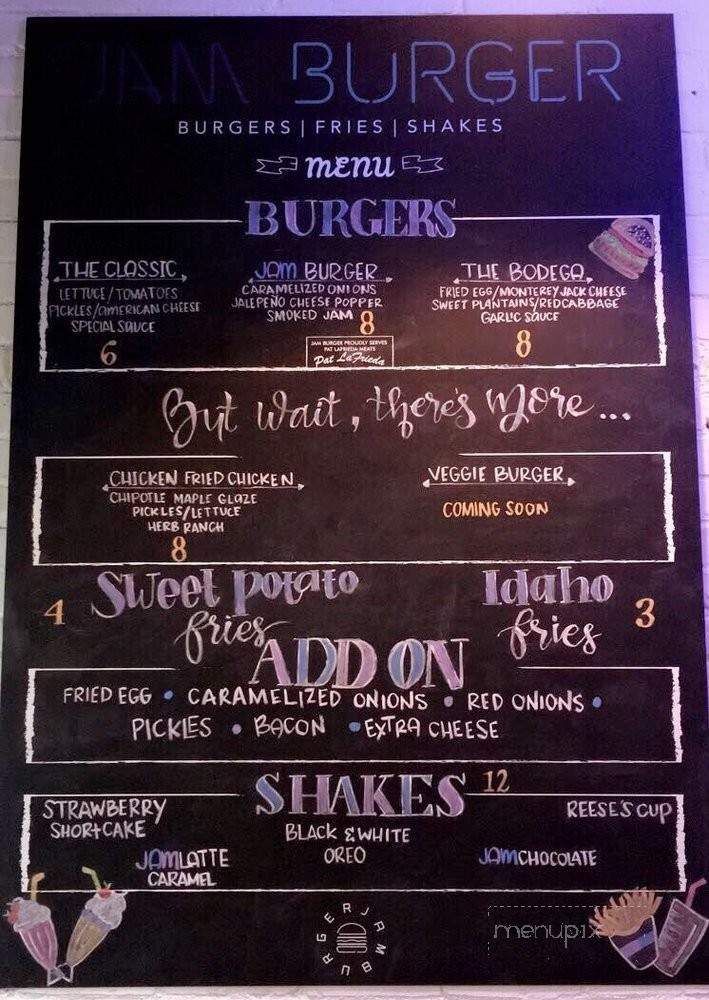 JAM BURGER
BURGERS | FRIES | SHAKES
menu
BURGERS
THE CLASSIC
LETTUCE / TOMATOES
PICKLES/AMERICAN CHEESE
SPECIAL SAUCE
6
JAM BURGER
CARAMELIZED ONIONS
JALEPEÑO CHEESE POPPER
SMOKED JAM
8
JAM BURGER PROUDLY SERVES
PAT LAFRIEDA MEATS
Pat LaFrieda
THE BODEGA
FRIED EGG/MONTEREY JACK CHEESE
SWEET PLANTAINS/RED CABBAGE
GARLIC SAUCE
8
But wait, there's More...
CHICKEN FRIED CHICKEN
CHIPOTLE MAPLE GLAZE
PICKLES/LETTUCE
HERB RANCH
8
VEGGIE BURGER
COMING SOON
4 Sweet potato
fries
Idaho 3
fries
ADD ON
FRIED EGG • CARAMELIZED ONIONS • RED ONIONS •
PICKLES • BACON • EXTRA CHEESE
SHAKES 12
STRAWBERRY
SHORTCAKE
JAMLATTE
CARAMEL
BLACK & WHITE
OREO
JAMCHOCOLATE
REESE'S CUP
JAM BURGER
menupix